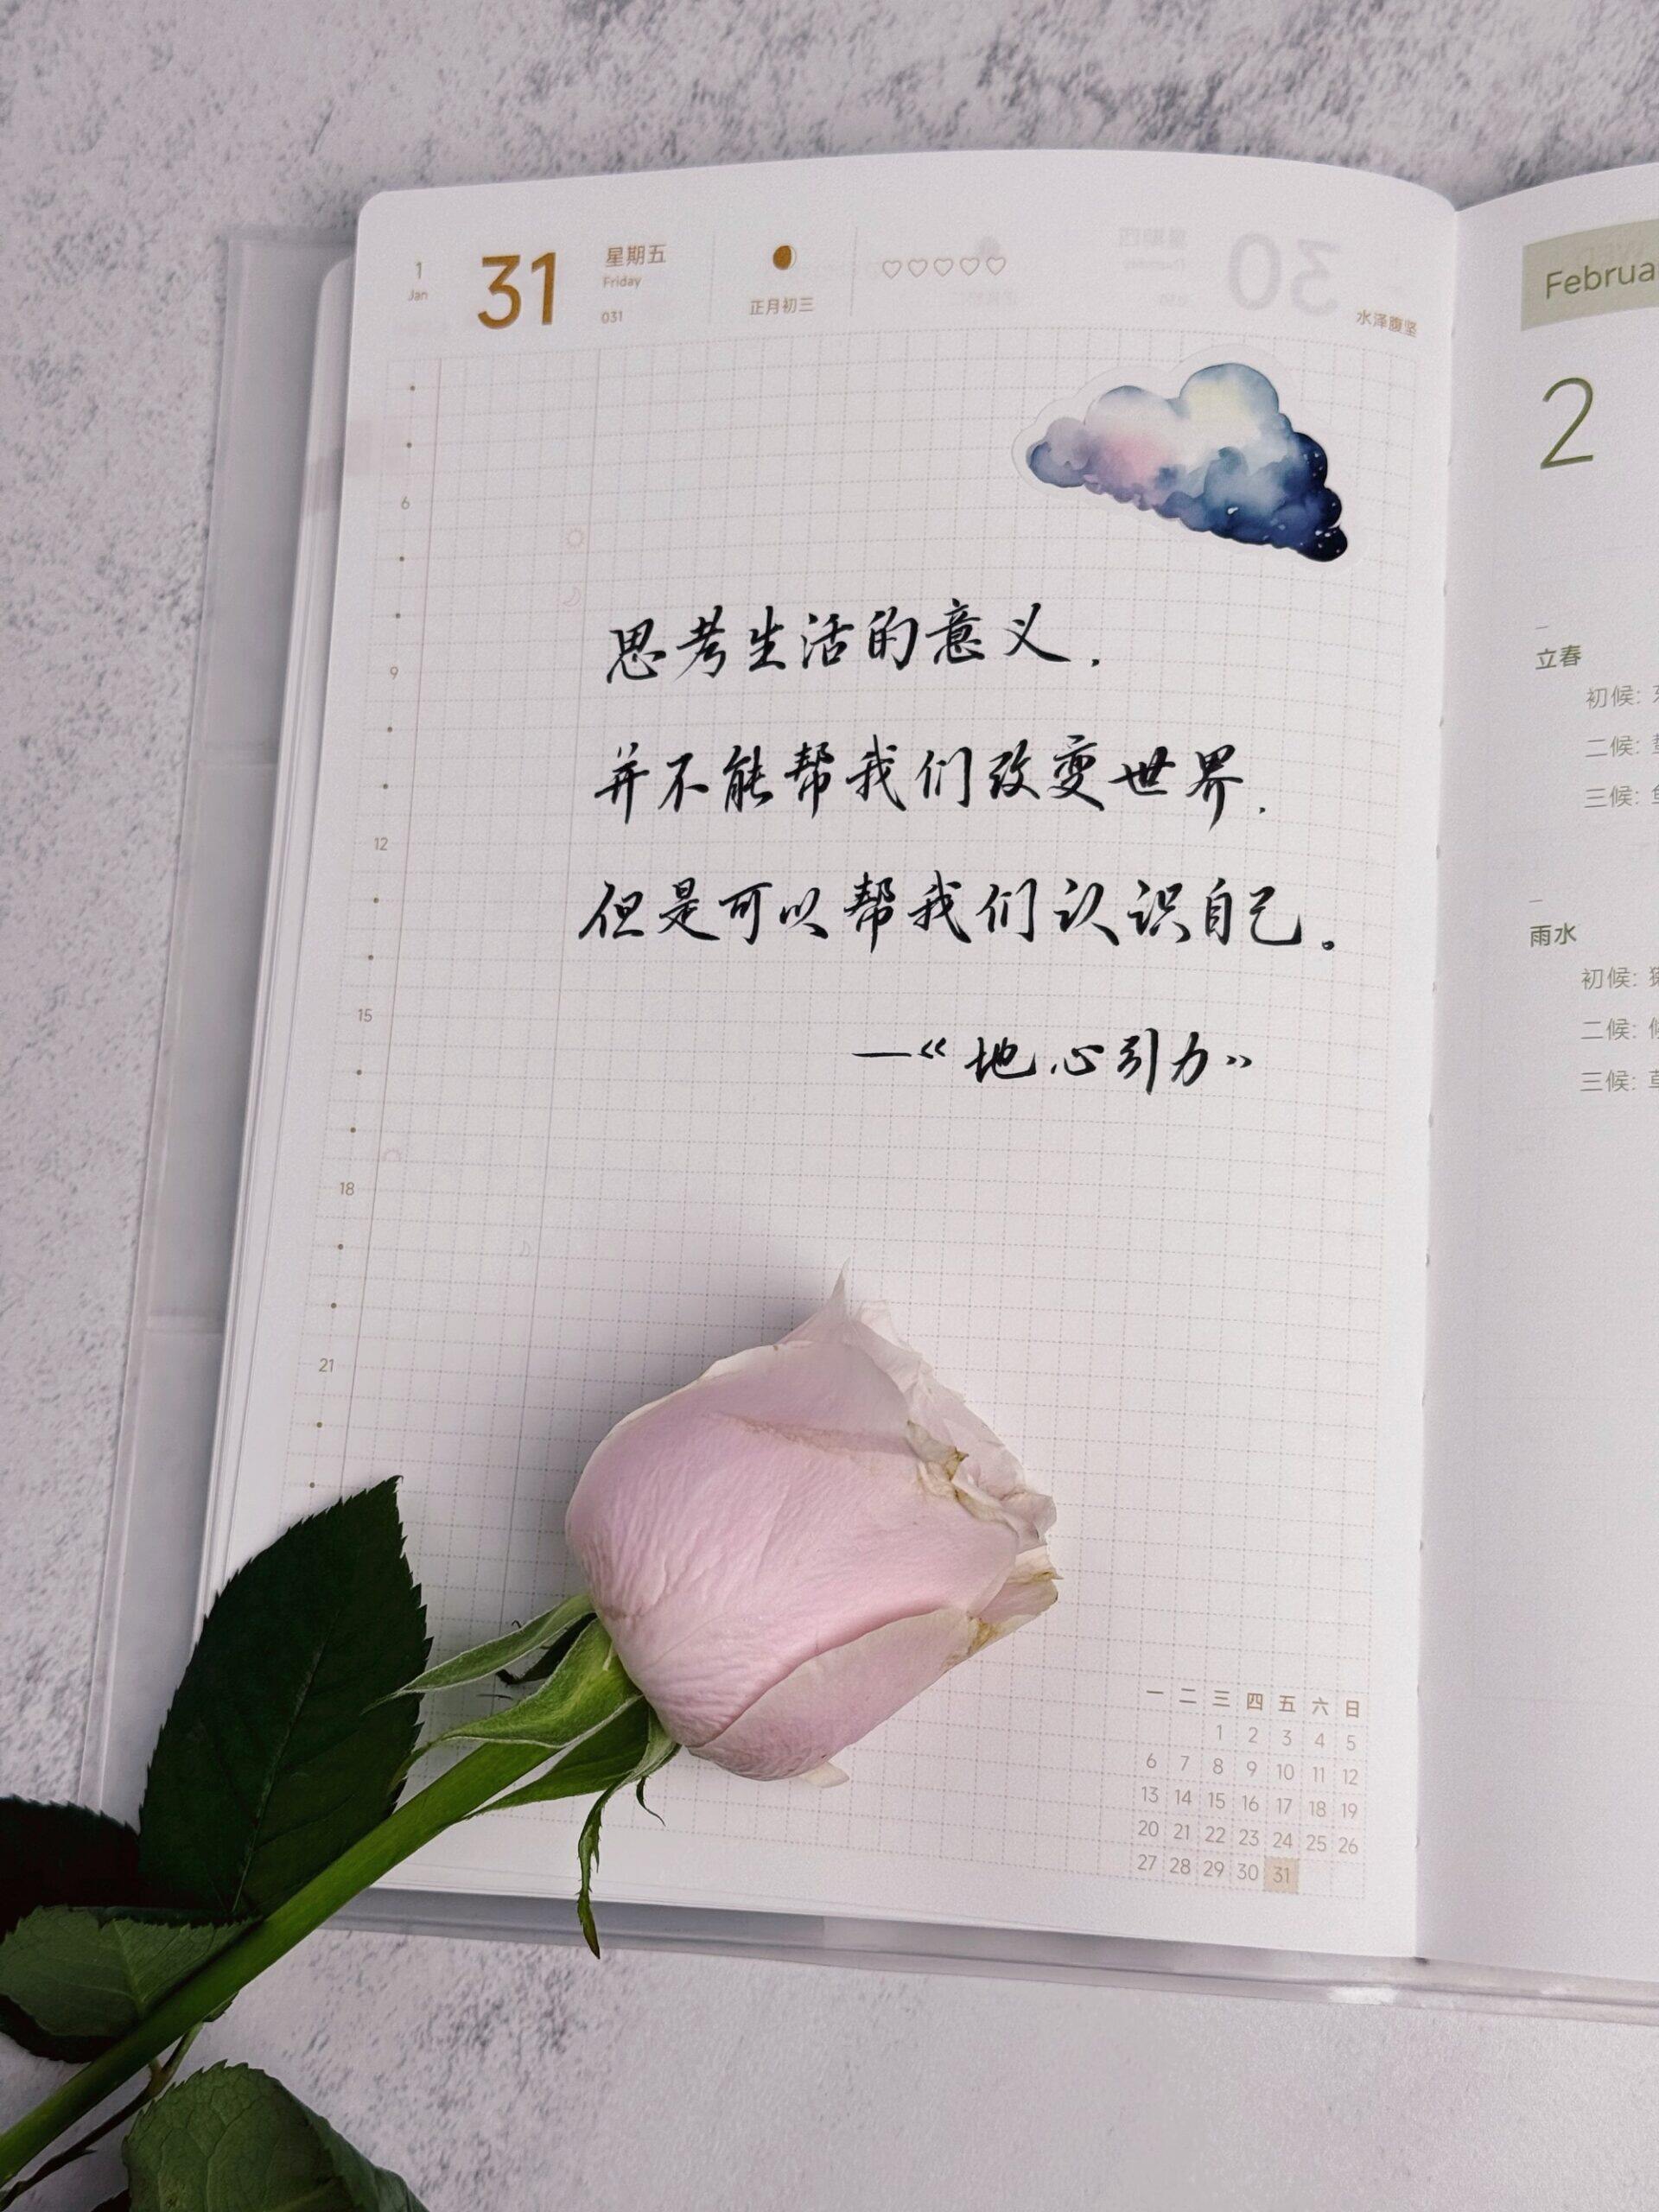 1
Jan
31
星期五
Friday
031
正月初三
水泽腹坚
6
9
12
15
18
21
思考生活的意义,
并不能帮我们改变世界,
但是可以帮我们认识自己。
—《地心引力》
一 二 三 四 五 六 日
1 2 3 4 5
6 7 8 9 10 11 12
13 14 15 16 17 18 19
20 21 22 23 24 25 26
27 28 29 30 31
2
立春
初候:
二候:
三候:
雨水
初候:
二候:
三候: